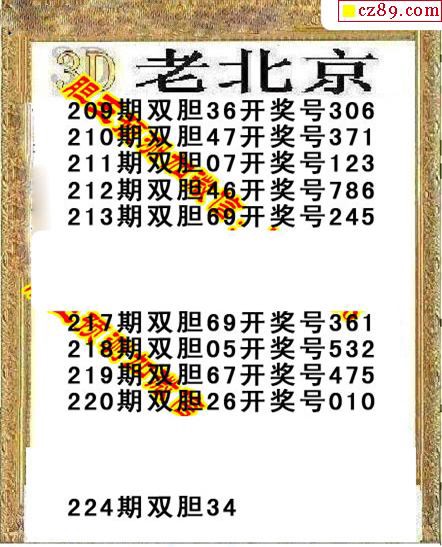 cz89.com
3D 老北京
209期双胆36开奖号306
210期双胆47开奖号371
211期双胆07开奖号123
212期双胆46开奖号786
213期双胆69开奖号245
217期双胆69开奖号361
218期双胆05开奖号532
219期双胆67开奖号475
220期双胆26开奖号010
224期双胆34